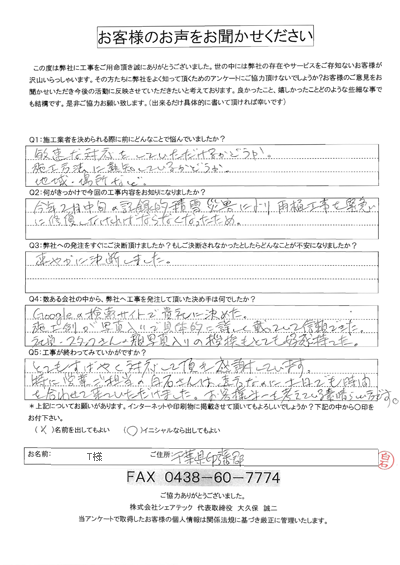 お客様のお声をお聞かせください
この度は弊社に工事をご用命頂き誠にありがとうございました。世の中には弊社の存在やサービスをご存知ないお客様が
沢山いらっしゃいます。その方たちに弊社をよく知って頂くためのアンケートにご協力頂けないでしょうか?お客様のご意見をお
聞かせいただき今後の活動に反映させていただきたいと考えております。良かったこと、嬉しかったことどのような些細な事で
も結構です。是非ご協力お願い致します。(出来るだけ具体的に書いて頂ければ幸いです)
Q1:施工業者を決められる際に前にどんなことで悩んでいましたか?
敏速な対応をしていただけるかどうか。
施工方法に熟知しているかどうか。
地域・場所など。
Q2:何がきっかけで今回の工事内容をお知りになりましたか?
今年2月中旬の記録的積雪災害により雨樋工事を早急
に修復しなければならなくなったため。
Q3:弊社への発注をすぐにご決断頂けましたか?もしご決断されなかったとしたらどんなことが不安になりましたか?
速やかに決断しました。
Q4:数ある会社の中から、弊社へ工事を発注して頂いた決め手は何でしたか?
Googleの検索サイトで最初に決めた。
施工例が写真入りで具体的に詳しく載っていて信頼できた。
社長・スタッフさんの顔写真入りの挨拶もとても好感持てた。
Q5:工事が終わってみていかがですか?
とてもすばやく対応して頂き感謝しています。
特に営業ご担当の白石さんは、急なのに土日でも時間
を合わせて来ていただけました。お客様第一を考えている素晴しい方です。
*上記についてお願いがあります。インターネットや印刷物に掲載させて頂いてもよろしいでしょうか?下記の中から〇印をお付け下さい。
( )名前を出してもよい (〇)イニシャルなら出してもよい
お名前: T様 ご住所: 千葉県印旛郡
白石
FAX 0438-60-7774
ご協力ありがとうございました。
株式会社シェアテック 代表取締役 大久保 誠二
当アンケートで取得したお客様の個人情報は関係法規に基づき厳正に管理いたします。